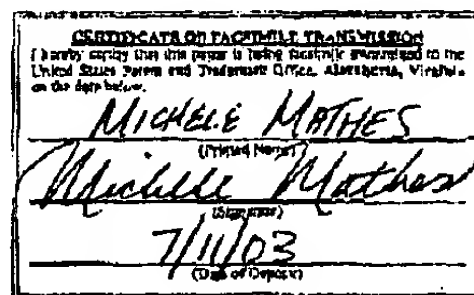 CERTIFICATE OF FACSIMILE TRANSMISSION
I hereby certify that this paper is being facsimile transmitted to the
United States Patent and Trademark Office, Alexandria, Virginia
on the date below.
MICHELE MATHES
(Printed Name)
Michele Mathes
(Signature)
7/11/03
(Date of Deposit)